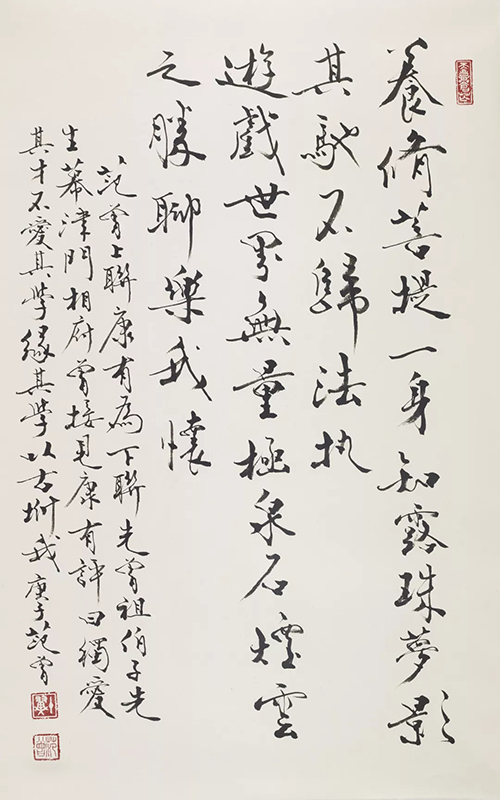 養脩菩提一身知露珠夢影
其不歸法执
遊戲世界無量極泉石煙雲
之勝聊樂我懷
范曾上聯康有為下聯先曾祖伯子先
生幕津門相府曾接見康有評曰獨愛
其才不愛其學緣其學以古坿我庚子范曾